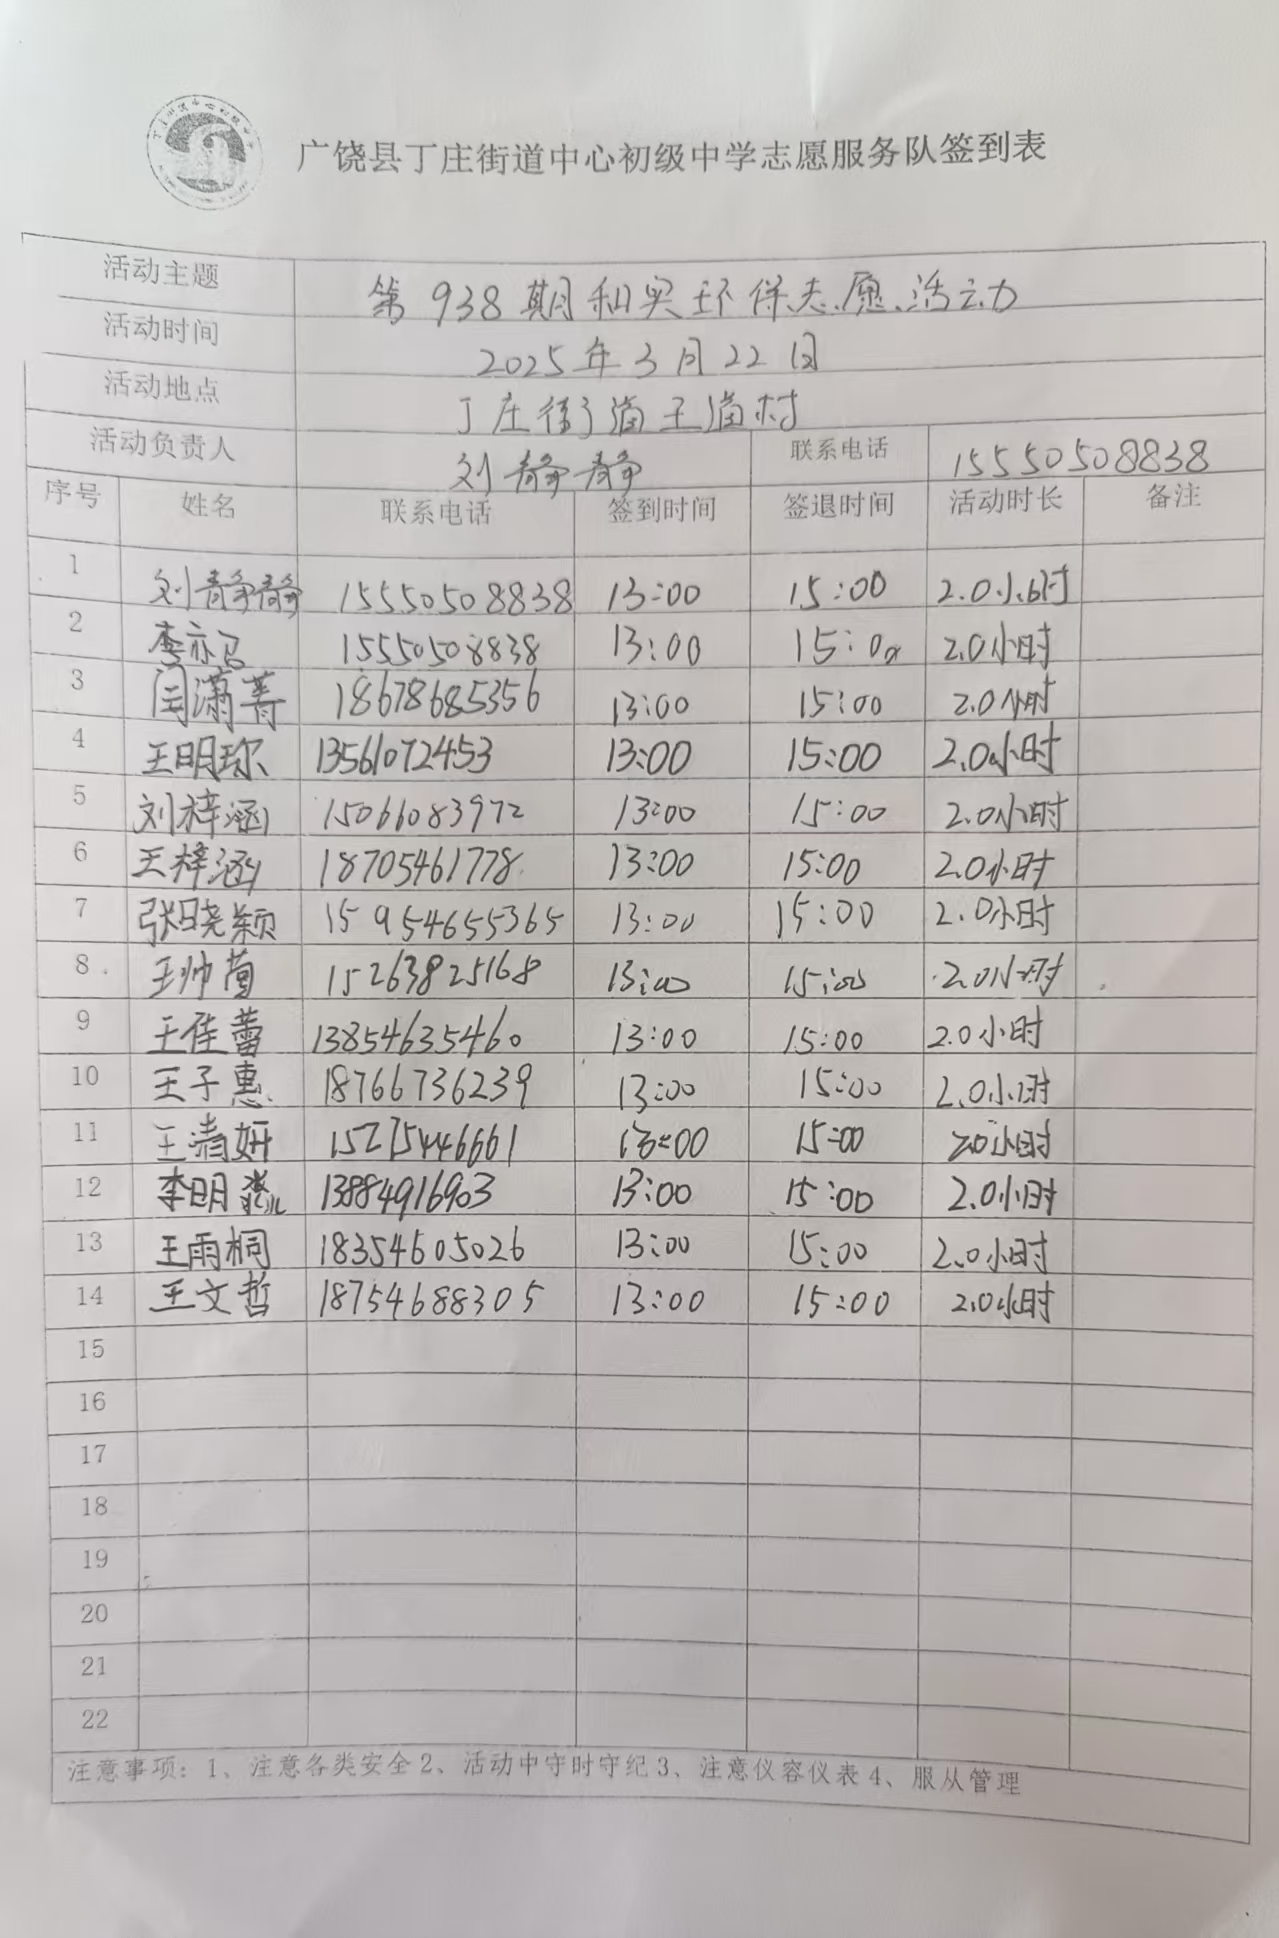 广饶县丁庄街道中心初级中学志愿服务队签到表
活动主题 第938期和美环保志愿活动
活动时间 2025年3月22日
活动地点 丁庄街道王道村
活动负责人 刘静静 联系电话 15550508838
序号 姓名 联系电话 签到时间 签退时间 活动时长 备注
1 刘静静 15550508838 13:00 15:00 2.0小时
2 李亦 15550508838 13:00 15:00 2.0小时
3 闫潇菁 18678685356 13:00 15:00 2.0小时
4 王明珎 13561072453 13:00 15:00 2.0小时
5 刘梓涵 15066083972 13:00 15:00 2.0小时
6 王梓涵 18705461778 13:00 15:00 2.0小时
7 张晓颖 15954655365 13:00 15:00 2.0小时
8 王帅 15263825168 13:00 15:00 2.0小时
9 王佳蕾 13854635460 13:00 15:00 2.0小时
10 王子惠 18766736239 13:00 15:00 2.0小时
11 王清妍 15275446661 13:00 15:00 2.0小时
12 李明 13884916903 13:00 15:00 2.0小时
13 王雨桐 18354605026 13:00 15:00 2.0小时
14 王文哲 18754688305 13:00 15:00 2.0小时
15
16
17
18
19
20
21
22
注意事项：1、注意各类安全2、活动中守时守纪3、注意仪容仪表4、服从管理